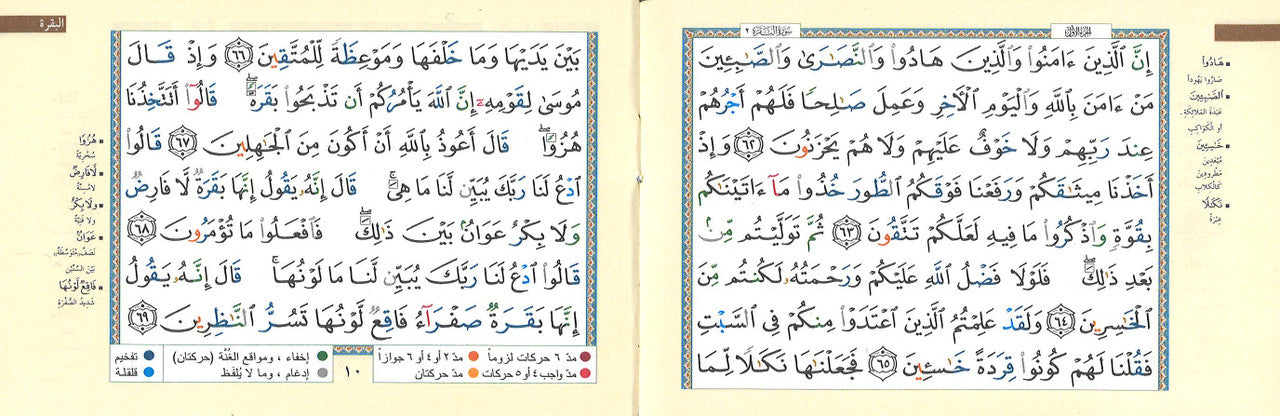 الجزء الأول
سورة البقرة ٢
إِنَّ ٱلَّذِينَ ءَامَنُوا۟ وَٱلَّذِينَ هَادُوا۟ وَٱلنَّصَٰرَىٰ وَٱلصَّٰبِـِٔينَ
مَنْ ءَامَنَ بِٱللَّهِ وَٱلْيَوْمِ ٱلْءَاخِرِ وَعَمِلَ صَٰلِحًا فَلَهُمْ أَجْرُهُمْ
عِندَ رَبِّهِمْ وَلَا خَوْفٌ عَلَيْهِمْ وَلَا هُمْ يَحْزَنُونَ ٦٢ وَإِذْ
أَخَذْنَا مِيثَٰقَكُمْ وَرَفَعْنَا فَوْقَكُمُ ٱلطُّورَ خُذُوا۟ مَآ ءَاتَيْنَٰكُم
بِقُوَّةٍ وَٱذْكُرُوا۟ مَا فِيهِ لَعَلَّكُمْ تَتَّقُونَ ٦٣ ثُمَّ تَوَلَّيْتُم مِّنۢ
بَعْدِ ذَٰلِكَ ۖ فَلَوْلَا فَضْلُ ٱللَّهِ عَلَيْكُمْ وَرَحْمَتُهُۥ لَكُنتُم مِّنَ
ٱلْخَٰسِرِينَ ٦٤ وَلَقَدْ عَلِمْتُمُ ٱلَّذِينَ ٱعْتَدَوْا۟ مِنكُمْ فِى ٱلسَّبْتِ
فَقُلْنَا لَهُمْ كُونُوا۟ قِرَدَةً خَٰسِـِٔينَ ٦٥ فَجَعَلْنَٰهَا نَكَٰلًا لِّمَا
هَادُوا
صاروا يهوداً
الصَّابِئِينَ
عبدة الملائكة
أو الكواكب
خَاسِئِينَ
مبعدين
مطرودين
كالكلاب
نَكَالًا
عبرة
البقرة
بَيْنَ يَدَيْهَا وَمَا خَلْفَهَا وَمَوْعِظَةً لِّلْمُتَّقِينَ ٦٦ وَإِذْ قَالَ
مُوسَىٰ لِقَوْمِهِۦٓ إِنَّ ٱللَّهَ يَأْمُرُكُمْ أَن تَذْبَحُوا۟ بَقَرَةً ۖ قَالُوٓا۟ أَتَتَّخِذُنَا
هُزُوًا ۖ قَالَ أَعُوذُ بِٱللَّهِ أَنْ أَكُونَ مِنَ ٱلْجَٰهِلِينَ ٦٧ قَالُوا۟
ٱدْعُ لَنَا رَبَّكَ يُبَيِّن لَّنَا مَا هِىَ ۚ قَالَ إِنَّهُۥ يَقُولُ إِنَّهَا بَقَرَةٌ لَّا فَارِضٌ
وَلَا بِكْرٌ عَوَانٌۢ بَيْنَ ذَٰلِكَ ۖ فَٱفْعَلُوا۟ مَا تُؤْمَرُونَ ٦٨
قَالُوا۟ ٱدْعُ لَنَا رَبَّكَ يُبَيِّن لَّنَا مَا لَوْنُهَا ۚ قَالَ إِنَّهُۥ يَقُولُ
إِنَّهَا بَقَرَةٌ صَفْرَآءُ فَاقِعٌ لَّوْنُهَا تَسُرُّ ٱلنَّٰظِرِينَ ٦٩
هُزُوًا
سخرية
لَا فَارِضٌ
لا مسنة
وَلَا بِكْرٌ
ولا فتية
عَوَانٌ
نصف «متوسطة»
بين السنين
فَاقِعٌ لَوْنُهَا
شديد الصفرة
مدّ ٦ حركات لزوماً
مدّ ٢ أو ٤ أو ٦ جوازاً
مدّ واجب ٤ أو ٥ حركات
مدّ حركتان
١٠
إخفاء ، ومواقع الغنّة (حركتان)
تفخيم
إدغام ، وما لا يُلفظ
قلقلة